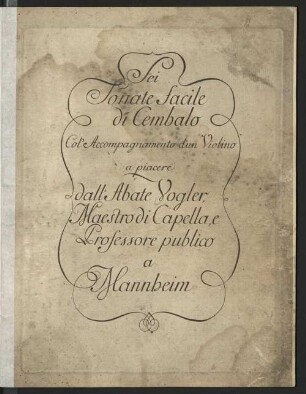 Sei
Sonate facile
di Cembalo
Col' Accompagnamento d'un Violino
a piacere
dall'Abate Vogler,
Maestro di Capella, e
Professore publico
a
Mannheim